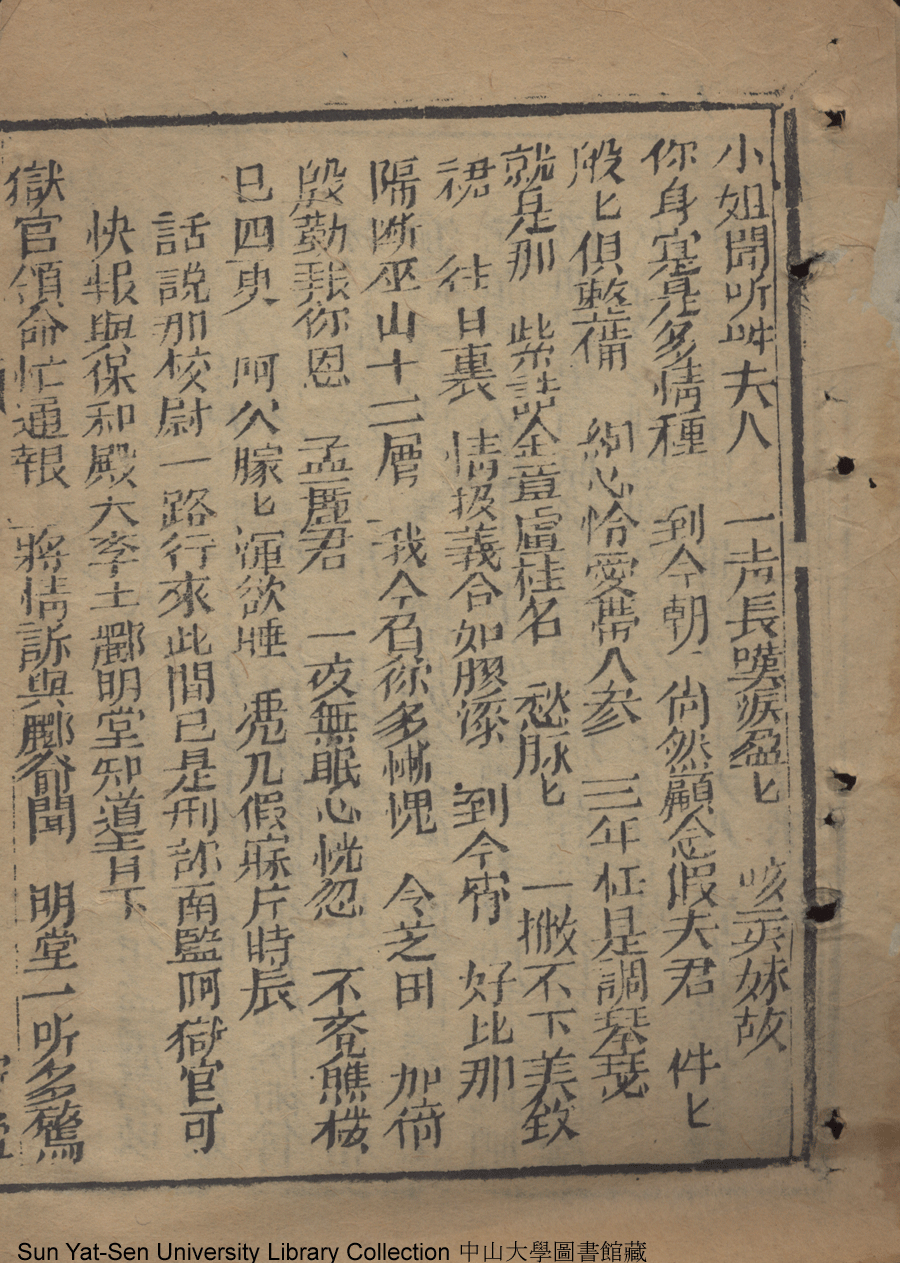 小姐聞听此夫人　一声長嘆淚盈匕　咳妹故
你身寔是多情種　到今朝　尚然顧念假夫君　件匕
般匕俱整備　細心恰愛帶人参　三年枉是調琴瑟
就是那　紫誥金章虛桂名　愁脉匕　一撇不下美致
裙　往日裏　情投義合如膠漆　到今宵　好比那
隔断巫山十二層　我今召你多慚愧　令芝田　加倍
殷勤我你恩　孟麗君　一夜無眠心恍忽　不竟譙楼
已四更　呵欠朦匕渾欲睡　凴几假寐片時辰
話説那校尉一路行來此間已是刑部南監呵獄官可
快報與保和殿大李士酈明堂知道旨下
獄官領命忙通報　將情訴與酈爺聞　明堂一听多驚
Sun Yat-Sen University Library Collection 中山大學圖書館藏